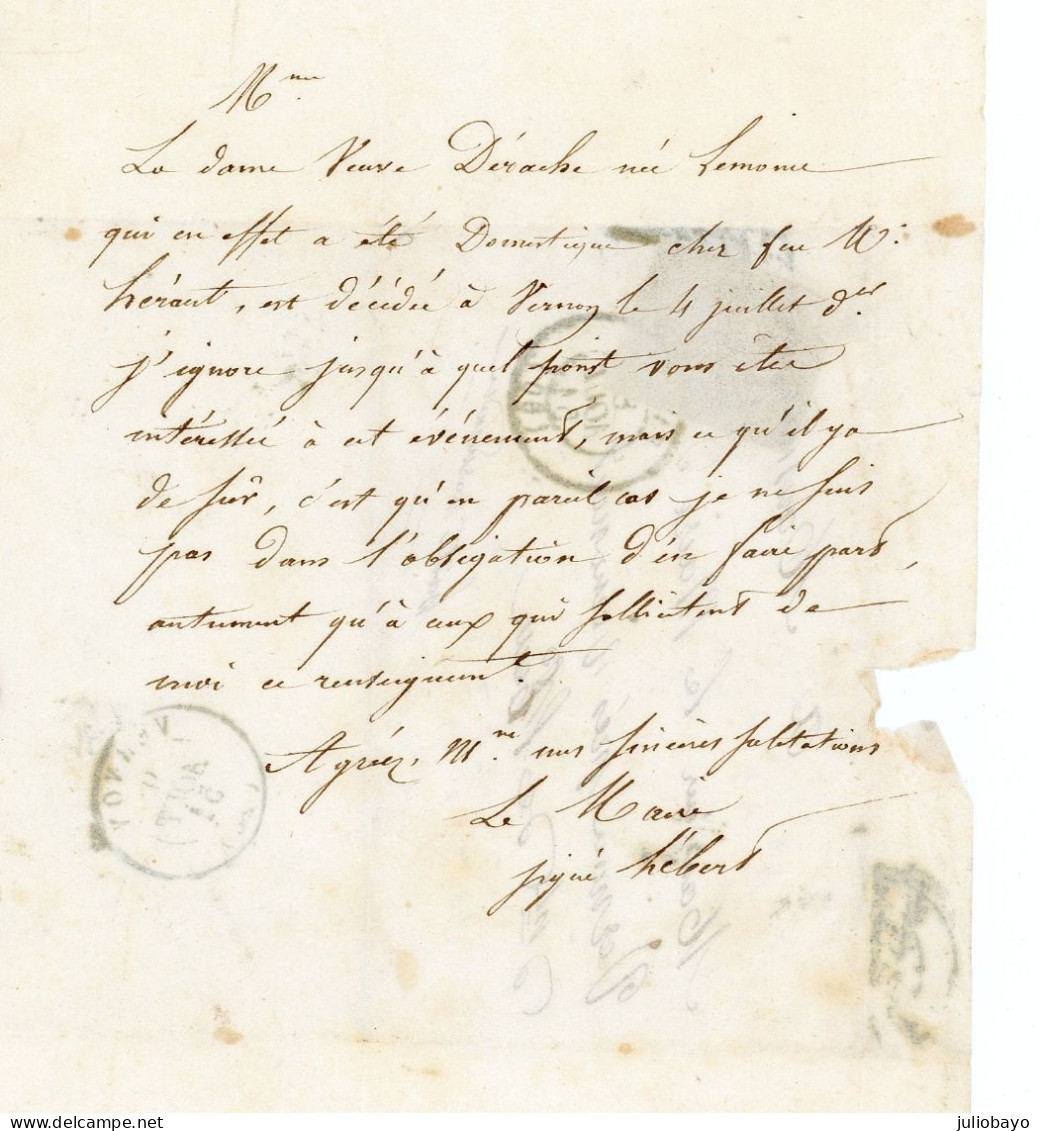 Mme
La dame Veuve Dérache née Lemoine
qui en effet a été Domestique chez feu Mr.
hérault, est décédée à Vernon le 4 juillet der.
j'ignore jusqu'à quel point vous êtes
intéressée à cet événement, mais ce qu'il y a
de sûr, c'est qu'en pareil cas je ne suis
pas dans l'obligation d'en faire part,
autrement qu'à ceux qui sollicitent de
moi ce renseignemt.
Agréez, Mme mes sincères salutations
Le Maire
signé hébert
juliobayo